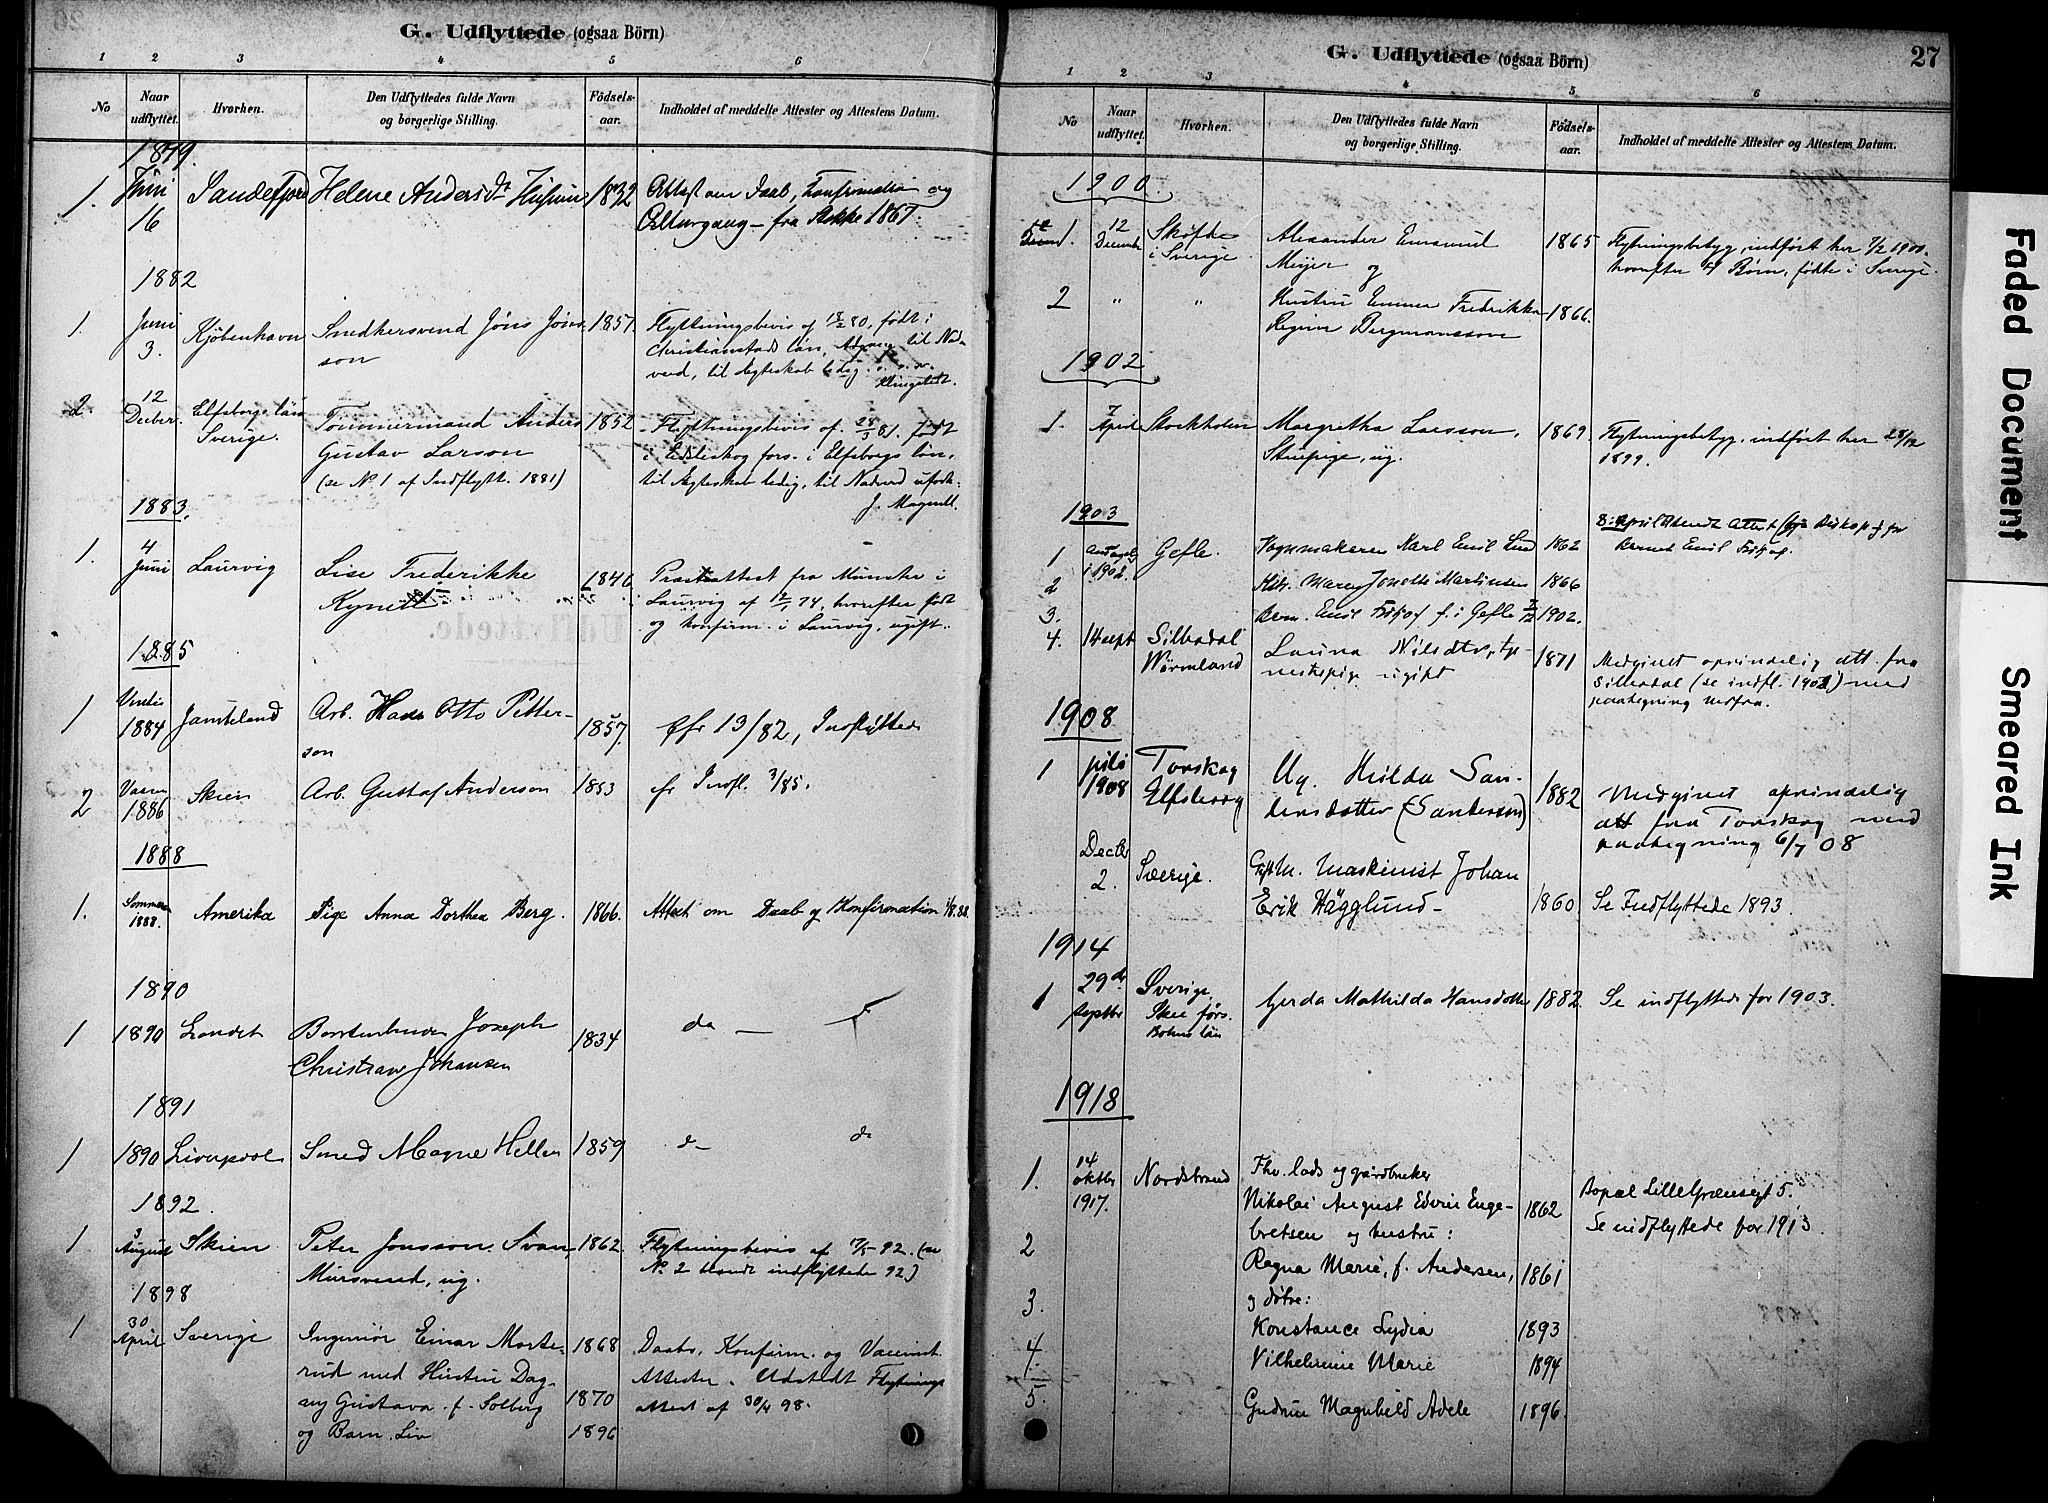 G. Udflyttede (ogsaa Börn)
1 2 3 4 5 6
No
Naar udflyttet.
Hvorhen.
Den Udflyttedes fulde Navn og borgerlige Stilling.
Födsels-aar.
Indholdet af meddelte Attester og Attestens Datum.
1879.
1. Juni 16 Sandefjord Helene Anders Dr 1832 Attest om Daab, Konfirmation og
Altergang – fra Stokke 1867.
1882
1. Juni 3. Kjöbenhavn Snedkersvend Jöns Jöns- 1857. Flyttningsbevis af 80, född i
son Christianstads län, til Nad-
verd, til Ægteskab ledig.
2. 12 Decber. Elfsborgs län Tömmermand Anders 1852 Flyttningsbevis af 28/3 81. född
Sverige. Gustav Larson i Edsleskog fors. i Elfsborgs län,
(se No 1 af Indflytt. 1881) til Ægteskab ledig, til Nadverd
1883.
1. 4 Juni Laurvig Lise Frederikke 1840. Præsteattest fra i
Laurvig af 74, hvorefter født
og konfirm. i Laurvig, ugift.
1885
1 1884 Jamteland Arb. Hans Otto Petter- 1857. Cfr 13/82, Indflyttede
son
2 Vaaren 1886 Skien Arb. Gustaf Anderson 1853 cfr Indfl. 3/85.
1888
1. Sommeren 1888. Amerika Pige Anna Dorthea Berg. 1866. Attest om Daab og Konfirmation
1890
1 1890 Landet Joseph 1834 do –
Christian Johansen
1891
1 1890 Liverpool Smed Magne Hellen 1859 d– do
1892.
1 3 August Skien Peter Jonsson Svan, 1862. Flytningsbevis af 17/5 - 92. (se
Mursvend, ug. No. 2 blandt indflyttede 92.)
1898
1 30 April Sverige Ingeniör Einar Morte- 1868 Daabs, Konfirm. og Vaccinat.
rud med Hustru Dag- Attester. Udstedt Flytnings
ny Gustava f. Solberg 1870 attest af 30/4 98.
og Barn, Liv 1896
G. Udflyttede (ogsaa Börn)
27
1 2 3 4 5 6
No
Naar udflyttet.
Hvorhen.
Den Udflyttedes fulde Navn og borgerlige Stilling.
Födsels-aar.
Indholdet af meddelte Attester og Attestens Datum.
1900.
1. 12 Decembr Sköfde Alexander 1865 Flytningsbetyg, indført her 7/2 1900.
i Sverige Meijer og hvorefter 4 Børn, fødte i Sverige.
2 " " Hustru Emma Fredrikke 1866.
Regina Bergmansson
1902
1. 7 April Stockholm Margretha Larsson, 1869. Flytningsbetyg, indført her 28/12
ug. 1899.
1903
1 i 1902. Gefle. Vognmaker Karl Emil Lind 1862
2 Hst. Maren Jonette Martinsen 1866
3. Barn. Emil f. i Gefle 1902.
4. 14 sept Silbodal Laura Nilsdtr, 1871 Medgivet oprindelig att. fra
Wärmland ugift Silbodal (se indfl. 1901) med
paategning
1908
1 juli 1908 Torskog Ug. Hilda San- 1882 Medgivet oprindelig
Elfsborg densdotter (Sanderson) att fra Torskog med
paategning 6/7 08
Decbr 2. Sverige. Maskinist Johan
Erik Hägglund – 1860 Se Indflyttede 1893.
1914
1 29de septbr Sverige Gerda Mathilda Hansdotter 1882 Se indflyttede for 1903.
Skee förs.
Bohus län
1918
1. 14 oktbr 1917. Nordstrand Fhv. lods og gårdbruker Bopæl Lille Grænsegt 5.
Nikolai August Edvin Enge- 1862 Se indflyttede for 1913.
2 bretsen og hustru:
Ragna Marie, f. Andersen, 1861
3. og døtre:
Konstance Lydia 1893
4. Vilhelmine Marie 1894
5. Gudrun Magnhild Adele 1896.
Faded Document
Smeared Ink